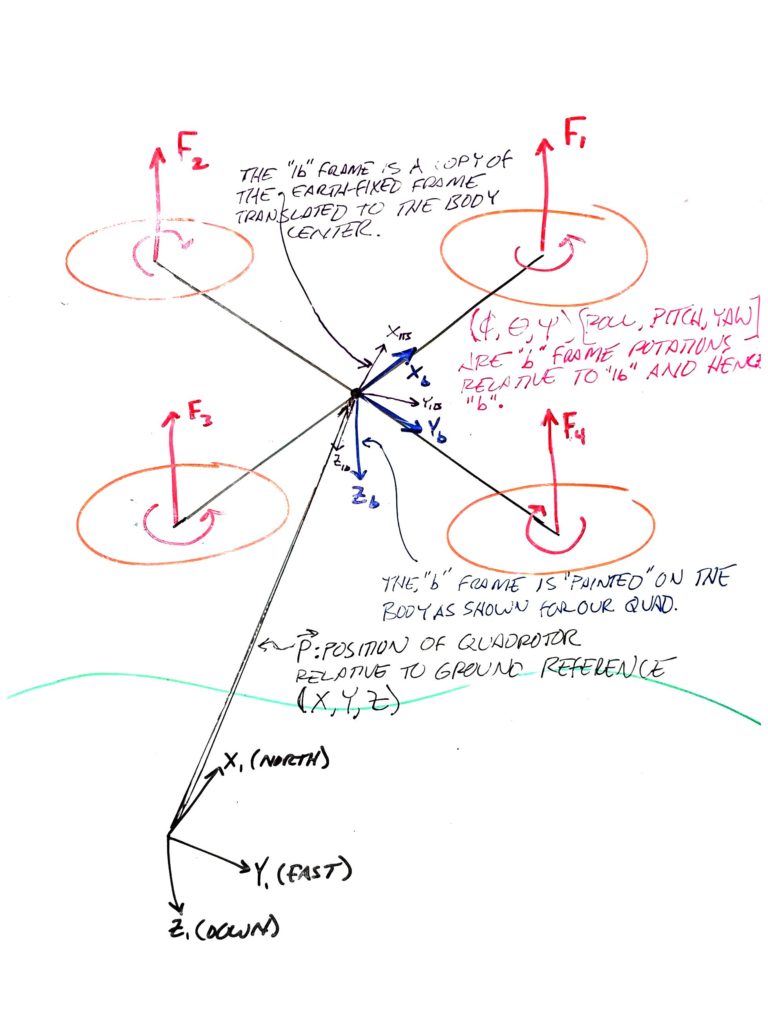 F₁
F₂
THE "1b" FRAME IS A COPY OF
THE EARTH-FIXED FRAME
TRANSLATED TO THE BODY
CENTER.
(ϕ, θ, ψ) [ROLL, PITCH, YAW]
ARE "b" FRAME ROTATIONS
RELATIVE TO "1b" AND HENCE
"b".
X₁b
Xb
Y₁b
Yb
Z₁b
Zb
F₃
F₄
THE "b" FRAME IS "PAINTED" ON THE
BODY AS SHOWN FOR OUR QUAD.
P⃗: POSITION OF QUADROTOR
RELATIVE TO GROUND REFERENCE
(X, Y, Z)
X₁ (NORTH)
Y₁ (EAST)
Z₁ (DOWN)